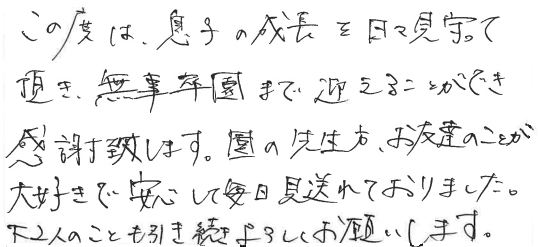 この度は、息子の成長を日々見守って
頂き、無事卒園まで迎えることができ
感謝致します。園の先生方、お友達のことが
大好きで安心して毎日見送れておりました。
下2人のことも引き続きよろしくお願いします。